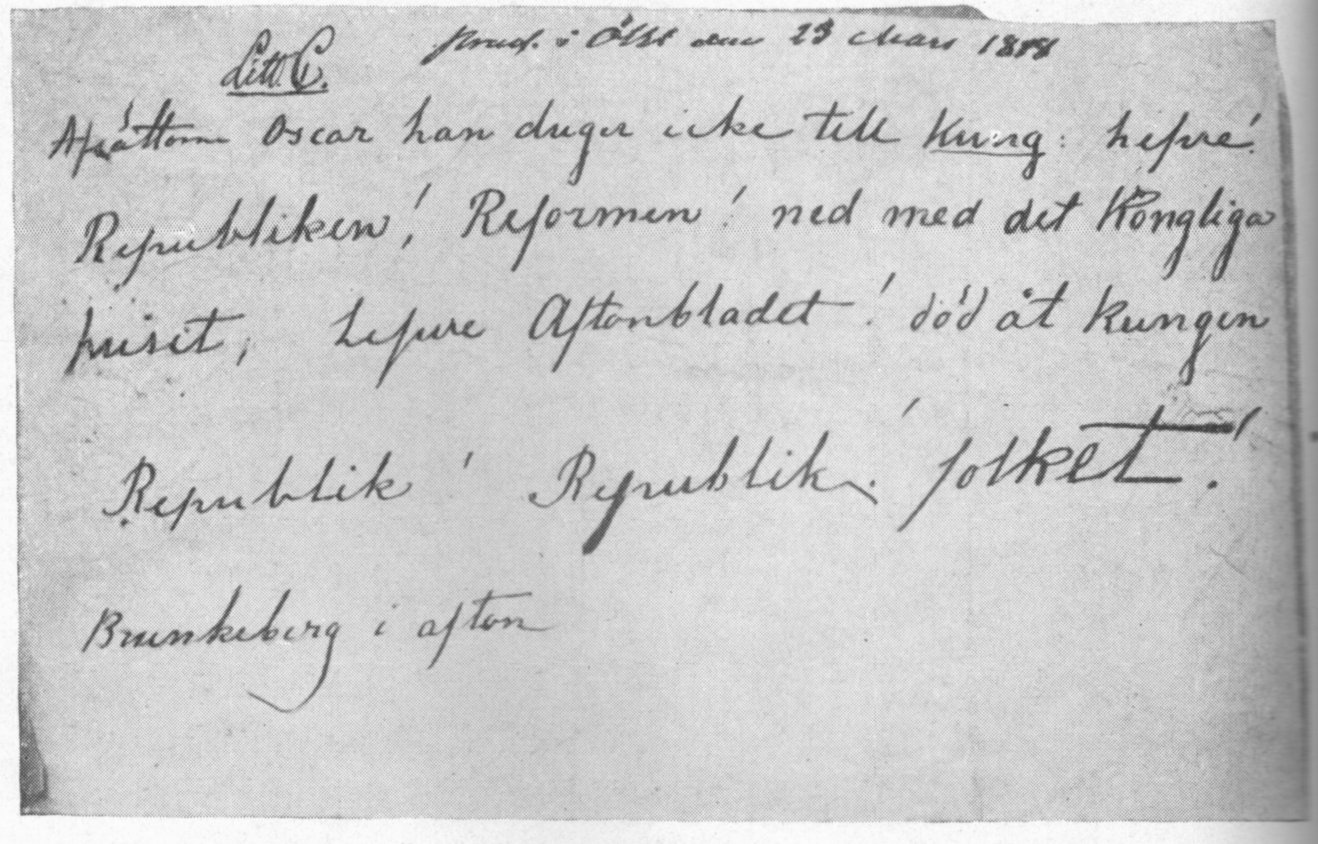 Litt. C. i ÖSte den 23 Mars 1848
Afsättom Oscar han duger icke till Kung: lefve!
Republiken! Reformen! ned med det Kongliga
huset, Lefve Aftonbladet! död åt Kungen
Republik! Republik! folket!
Brunkeberg i afton